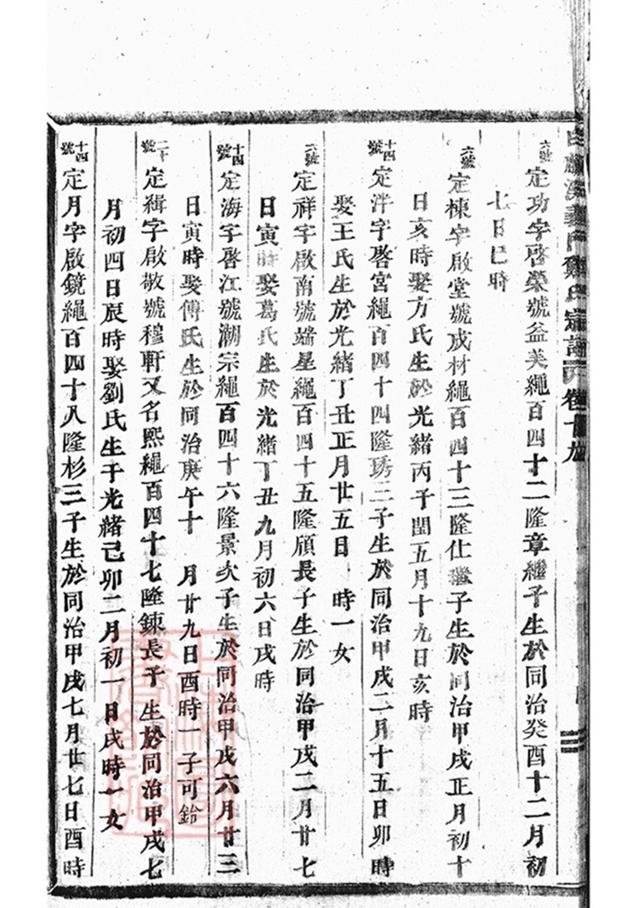 義門鄭氏宗譜 卷十九
六號 定功字啓榮號益美繩百四十二隆章繼子生於同治癸酉十二月初
七日巳時
六號 定棟字啟堂號成材繩百四十三隆仕繼子生於同治甲戌正月初十
日亥時娶方氏生於光緒丙子閏五月十九日亥時
十四號 定泮字啓宮繩百四十四隆琇三子生於同治甲戌二月十五日卯時
娶王氏生於光緒丁丑正月廿五日 時一女
定祥字啟南號端星繩百四十五隆頎長子生於同治甲戌二月廿七
日寅時娶葛氏生於光緒丁丑九月初六日戌時
十四號 定海字啓江號潮宗繩百四十六隆景次子生於同治甲戌六月廿三
日寅時娶傅氏生於同治庚午十 月廿九日酉時一子可鈴
二十號 定緝字啟敬號穆軒又名熙繩百四十七隆鍊長子生於同治甲戌七
月初四日辰時娶劉氏生于光緒己卯二月初一日戌時一女
十四號 定月字啟鏡繩百四十八隆杉三子生於同治甲戌七月廿七日酉時